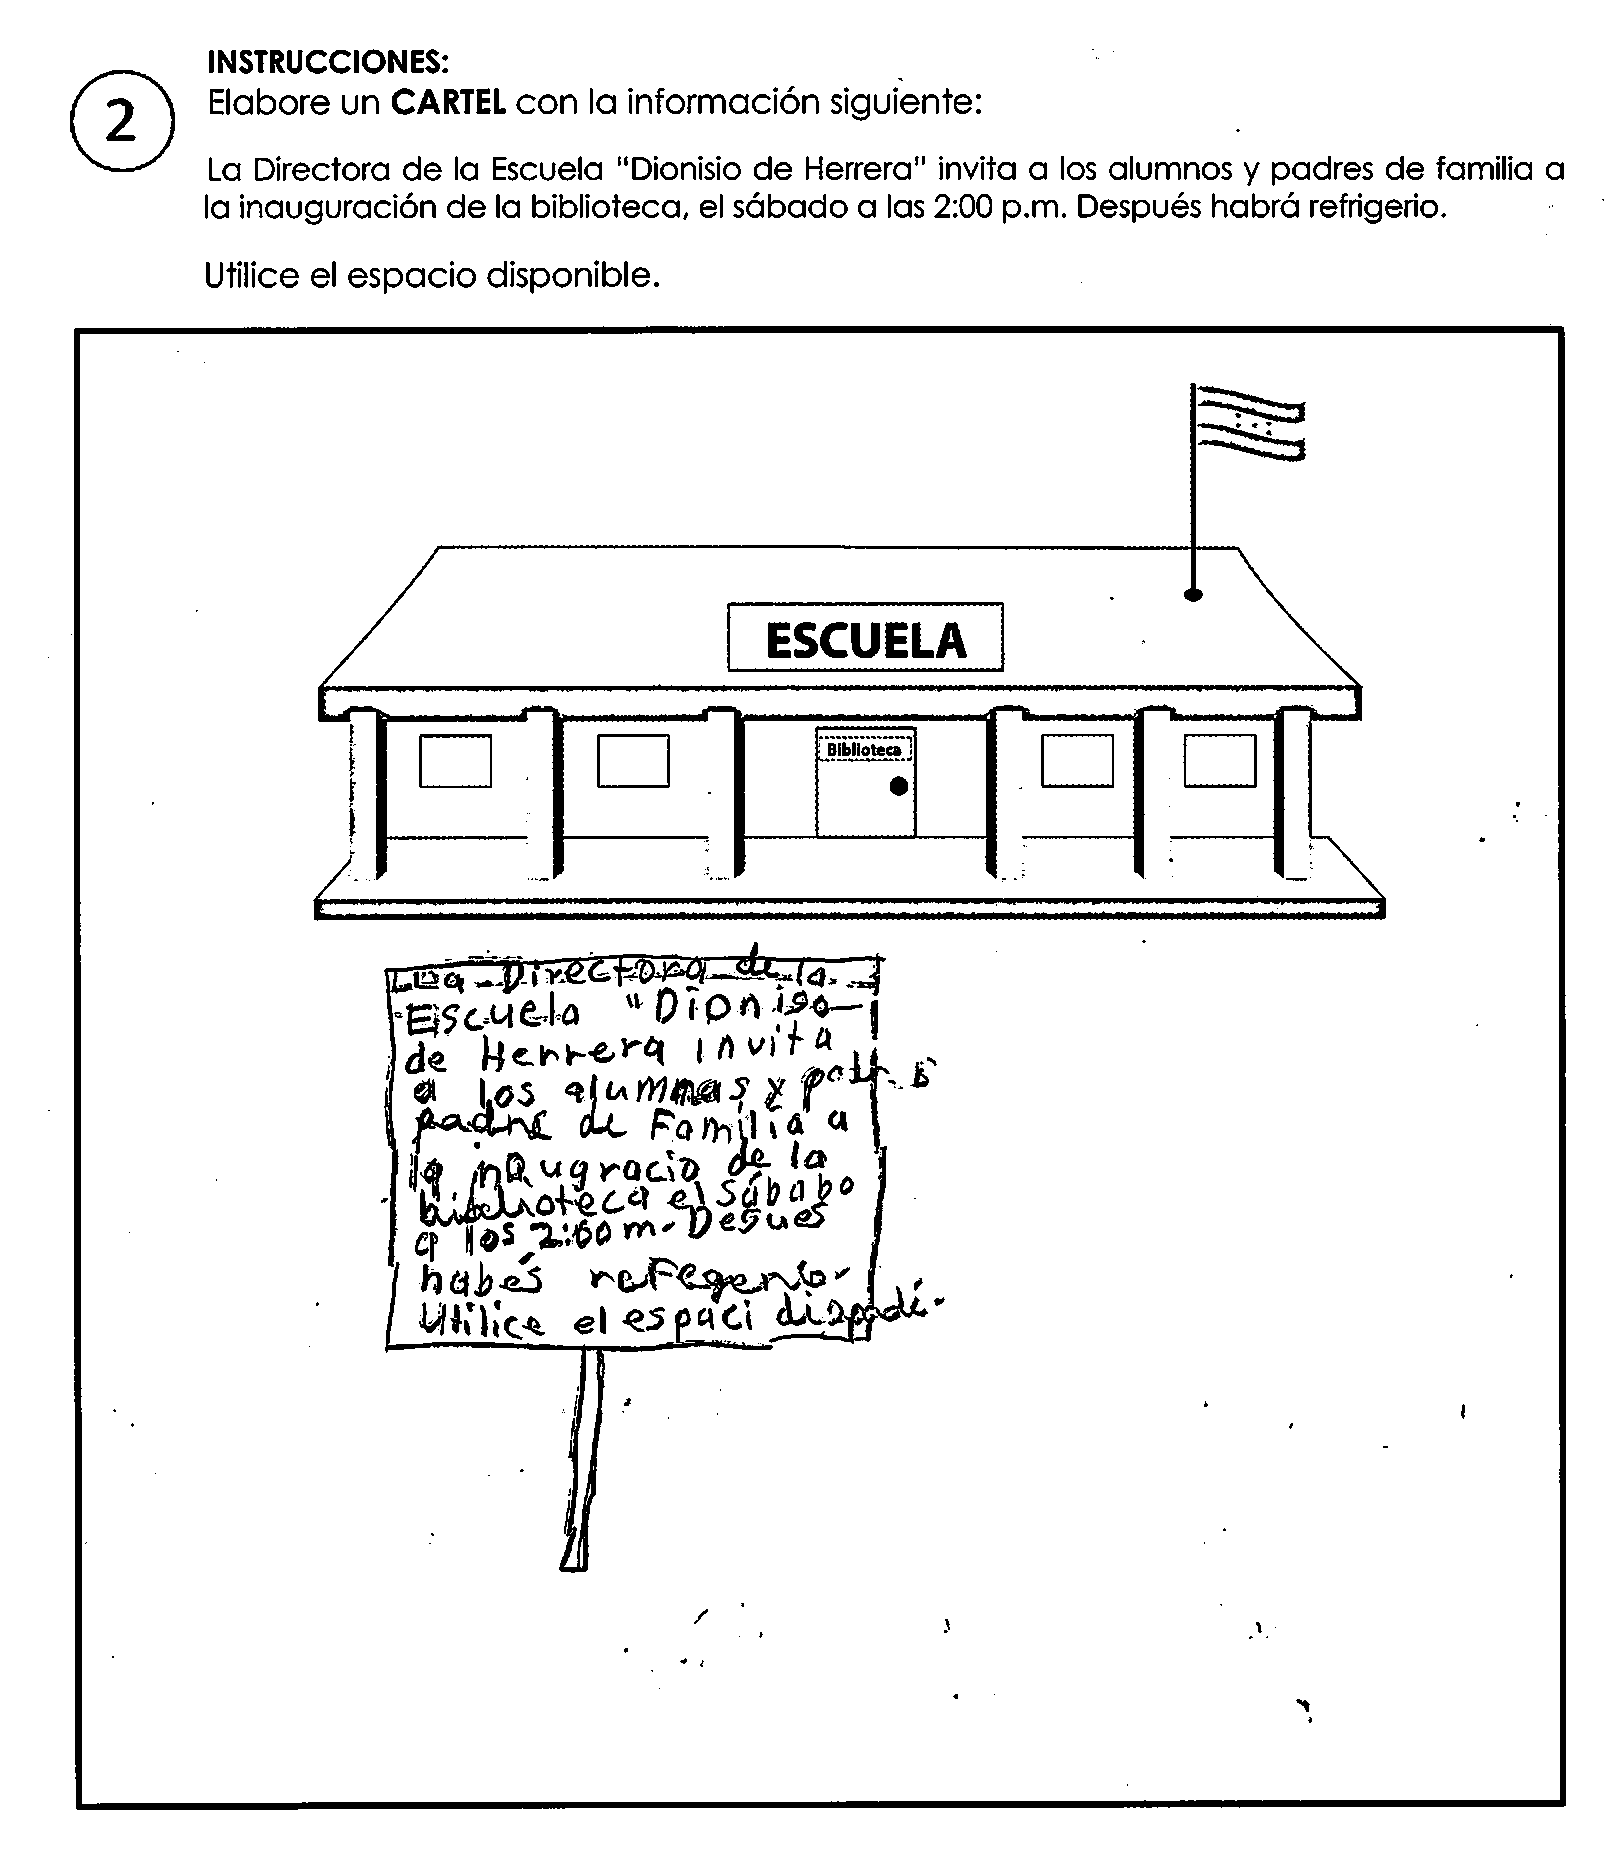 INSTRUCCIONES:
2
Elabore un CARTEL con la información siguiente:
La Directora de la Escuela "Dionisio de Herrera" invita a los alumnos y padres de familia a
la inauguración de la biblioteca, el sábado a las 2:00 p.m. Después habrá refrigerio.
Utilice el espacio disponible.
ESCUELA
Biblioteca
La Directora de la
Escuela "Dioniso
de Herrera invita
a los alumnas y
padre de Familia a
la inaugracio de la
biblioteca el sábabo
a los 2:00 m. Desues
habés refegerio.
Utilice el espaci